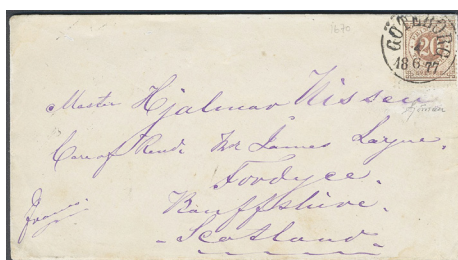 1670
GÖTEBORG
18 6 77
20
Master Hjalmar Nissen
Care of Revd. Mr James Layne.
Fordyce.
Banffshire.
Scotland